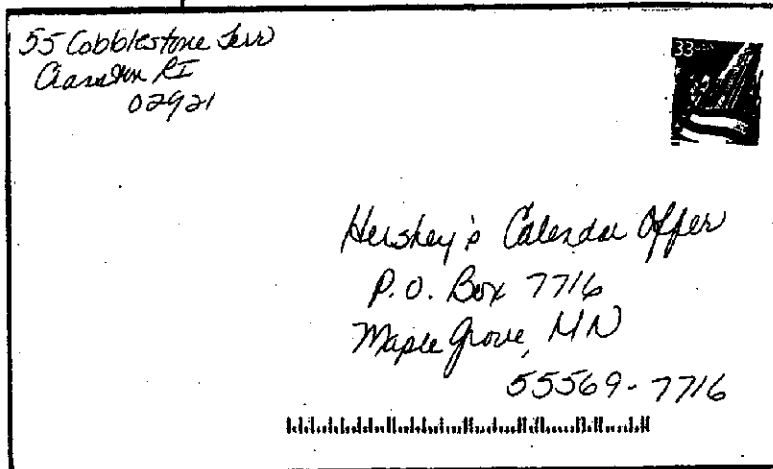 55 Cobblestone Terr
Cranston RI
02921
33
Hershey's Calendar Offer
P.O. Box 7716
Maple Grove, MN
55569-7716